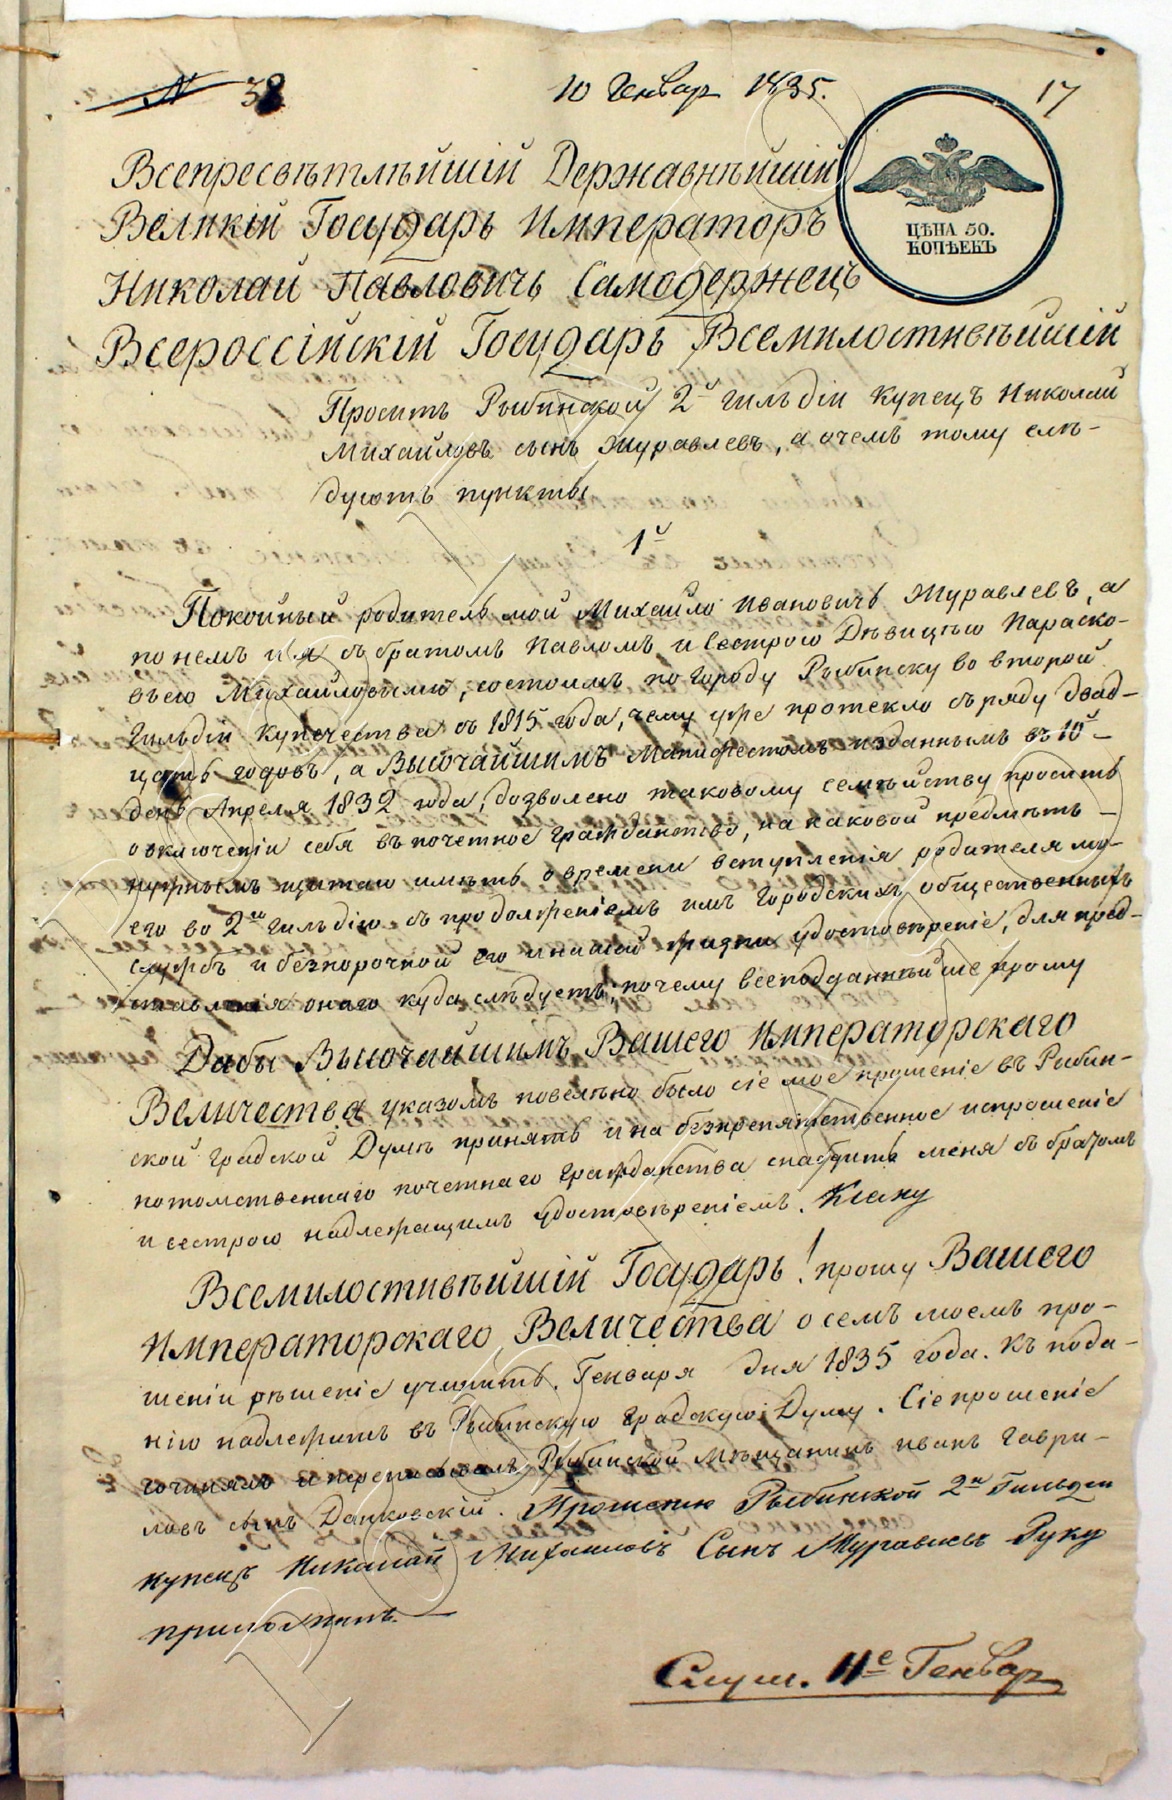 № 38 10 Генвар 1835. 17
ЦѢНА 50.
КОПѢЕКЪ
Всепресвѣтлѣйшій Державнѣйшій
Великій Государь Императоръ
Николай Павловичь Самодержецъ
Всероссійскій Государь Всемилостивѣйшій
Проситъ Рыбинской 2й гильдіи купецъ Николай
Михайловъ сынъ Журавлевъ, а очемъ тому слѣ-
дуютъ пункты
1й
Покойный родитель мой Михайло Ивановичь Журавлевъ, а
по немъ и я съ братомъ Павломъ и Сестрою Дѣвицею Параско-
вьею Михайловыми, состоимъ по городу Рыбинску во второй
Гильдіи Купечества съ 1815 года, чему уже протекло съ ряду двад-
цать годовъ, а Высочайшимъ Манифестомъ изданнымъ въ 10й
день Апреля 1832 года, дозволено таковому семѣйству просить
о включеніи себя въ почетное гражданство, на каковой предмѣтъ
нужнымъ щитаю имѣть о времени вступленія родителя мо-
его во 2ю гильдію съ продолженіемъ имъ городскихъ общественныхъ
службъ и безпорочной его и нашей жизни удостовѣреніе, для пред-
ставленія онаго куда слѣдуетъ, почему всеподданнѣйше прошу
Дабы Высочайшимъ Вашего Императорскаго
Величества указомъ повелѣно было сіе мое прошеніе въ Рыбин-
ской градской Думѣ принять и на безпрепятственное испрошеніе
потомственнаго почетнаго гражданства снабдить меня съ братомъ
и сестрою надлежащимъ удостовѣреніемъ. К сему
Всемилостивѣйшій Государь! прошу Вашего
Императорскаго Величества о семъ моемъ про-
шеніи рѣшеніе учинить. Генваря дня 1835 года. Къ пода-
нію надлежитъ въ Рыбинскую градскую Думу. Сіе прошеніе
сочинялъ и переписывалъ Рыбинской мѣщанинъ иванъ Гаври-
ловъ сынъ Данковскій. Прошенію Рыбинской 2й Гильдеи
купецъ Николай Михайловъ Сынъ Журавлевъ Руку
приложилъ.
Слуш. 11е Генвар